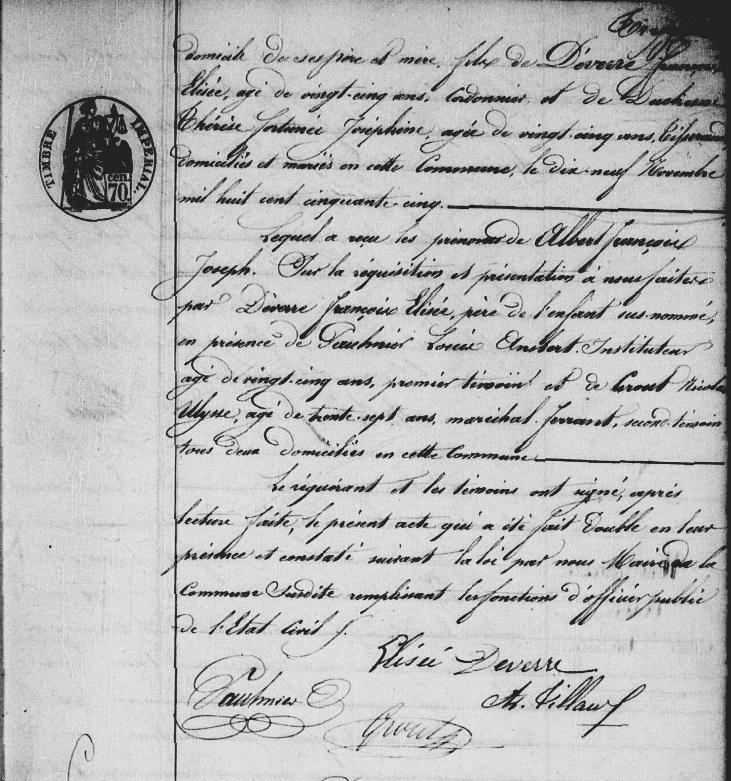 TIMBRE IMPÉRIAL
cen. 70
domicile de ses père et mère, fils de Deverre françois
Elisée, agé de vingt-cinq ans, Cordonnier, et de Duchesne
Thérèse fortunée Joséphine, agée de vingt-cinq ans,
domiciliés et mariés en cette Commune, le dix-neuf Novembre
mil huit cent cinquante-cinq.
Lequel a reçu les prénoms de Albert françois
Joseph. Sur la réquisition et présentation à nous faites
par Deverre françois Elisée, père de l'enfant sus-nommé,
en présence de Paulmier Louis Instituteur
agé de vingt-cinq ans, premier témoin et de Grout Nicolas
Ulysse, agé de trente-sept ans, maréchal-ferrant, second témoin
tous deux domiciliés en cette Commune.
Le réquérant et les témoins ont signé, après
lecture faite, le présent acte qui a été fait double en leur
présence et constaté suivant la loi par nous Maire de la
Commune Susdite remplissant les fonctions d'officier public
de l'Etat Civil
Elisée Deverre
Paulmier
Grout